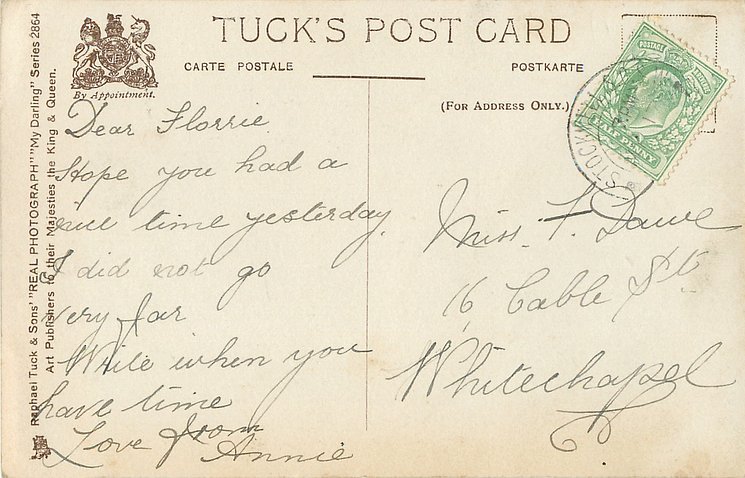 TUCK'S POST CARD
CARTE POSTALE
POSTKARTE
(FOR ADDRESS ONLY.)
By Appointment.
Raphael Tuck & Sons' "REAL PHOTOGRAPH" "My Darling" Series 2864
Art Publishers to their Majesties the King & Queen.
POSTAGE
HALFPENNY
STOCKWELL
Dear Florrie
Hope you had a
nice time yesterday.
I did not go
very far
Write when you
have time
Love from
Annie
Miss. F. Dawe
16 Cable St
Whitechapel